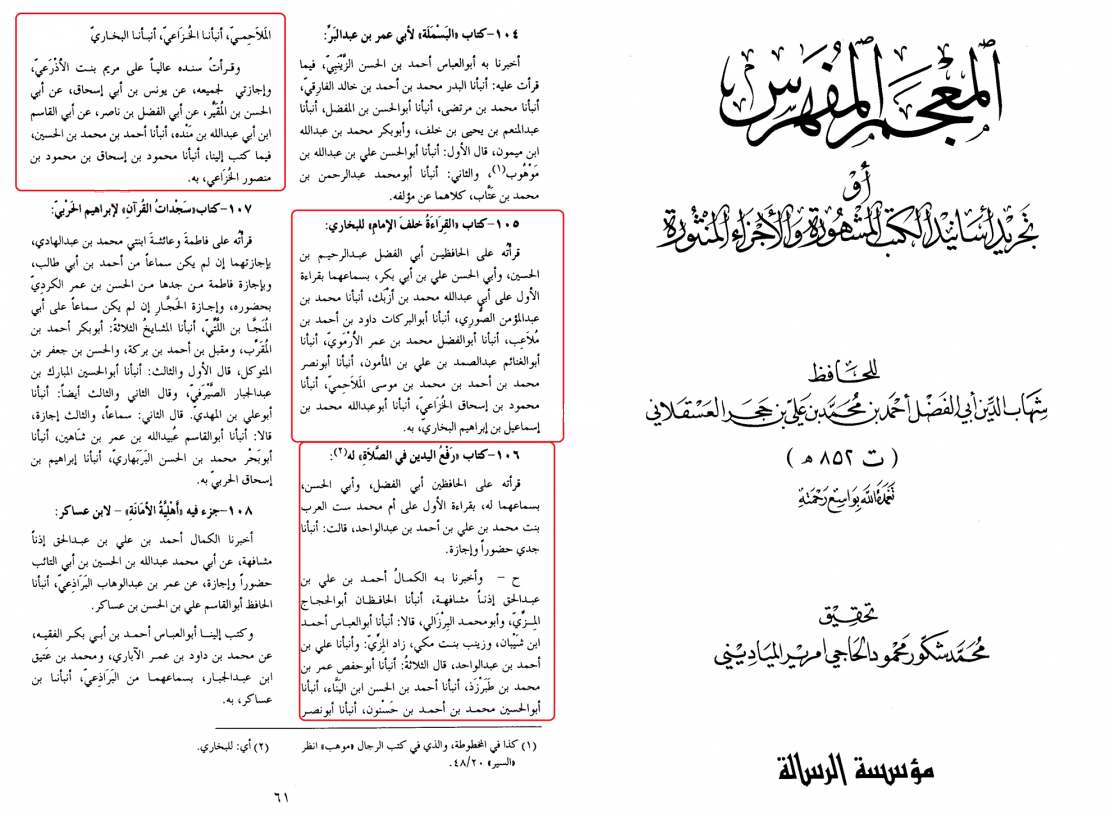 المعجم المفهرس
أو
تجريد أسانيد الكتب المشهورة والأجزاء المنثورة
للحافظ
شهاب الدين أبي الفضل أحمد بن محمد بن علي بن حجر العسقلاني
( ت ٨٥٢ ه )
تغمده الله بواسع رحمته
تحقيق
محمد شكور محمود الحاجي امرير المياديني
مؤسسة الرسالة
١٠٤-كتاب «البَسْمَلَة» لأبي عمر بن عبدالبَرِّ:
أخبرنا به أبوالعباس أحمد بن الحسن الزَّيْنَبِيّ، فيما
قرأت عليه: أنبأنا البدر محمد بن أحمد بن خالد الفارقيّ،
أنبأنا محمد بن مرتضى، أنبأنا أبوالحسن بن المفضل، أنبأنا
عبدالمنعم بن يحيى بن خلف، وأبوبكر محمد بن عبدالله
ابن ميمون، قال الأول: أنبأنا أبوالحسن علي بن عبدالله بن
مَوْهُوب(١)، والثاني: أنبأنا أبومحمد عبدالرحمن بن
محمد بن عتَّاب، كلاهما عن مؤلفه.
١٠٥-كتاب «القِرَاءَةُ خلفَ الإمام» للبخاري:
قرأتُه على الحافظين أبي الفضل عبدالرحيم بن
الحسين، وأبي الحسن علي بن أبي بكر، بسماعهما بقراءة
الأول على أبي عبدالله محمد بن أزْبَك، أنبأنا محمد بن
عبدالمؤمن الصُّورِي، أنبأنا أبوالبركات داود بن أحمد بن
مُلاَعِب، أنبأنا أبوالفضل محمد بن عمر الأُرْمَوِيّ، أنبأنا
أبوالغنائم عبدالصمد بن علي بن المأمون، أنبأنا أبونصر
محمد بن أحمد بن محمد بن موسى المَلاَحِميّ، أنبأنا
محمود بن إسحاق الخُزَاعيّ، أنبأنا أبوعبدالله محمد بن
إسماعيل بن إبراهيم البخاريّ، به.
١٠٦-كتاب «رَفْعُ اليدين في الصَّلاَةِ» له(٢):
قرأته على الحافظين أبي الفضل، وأبي الحسن،
بسماعهما له، بقراءة الأول على أم محمد ست العرب
بنت محمد بن علي بن أحمد بن عبدالواحد، قالت: أنبأنا
جدي حضوراً وإجازة.
ح - وأخبرنا به الكمالُ أحمد بن علي بن
عبدالحق إذناً مشافهة، أنبأنا الحافظان أبوالحجاج
المِزِّيّ، وأبومحمد البِرْزَالي، قالا: أنبأنا أبوالعباس أحمد
ابن شَيْبَان، وزينب بنت مكي، زاد المِزِّيّ: وأنبأنا علي بن
أحمد بن عبدالواحد، قال الثلاثةُ: أنبأنا أبوحفص عمر بن
محمد بن طَبَرْزَد، أنبأنا أحمد بن الحسن ابن البَنَّاء، أنبأنا
أبوالحسين محمد بن أحمد بن حَسْنون، أنبأنا أبونصر
(١) كذا في المخطوطة، والذي في كتب الرجال «موهب» انظر
«السير» ٤٨/٢٠.
المَلاَحِميّ، أنبأنا الخُزَاعيّ، أنبأنا البخاريّ
وقرأتُ سنده عالياً على مريم بنت الأَذْرَعيّ،
وإجازتي لجميعه، عن يونس بن أبي إسحاق، عن أبي
الحسن بن المُقَيَّر، عن أبي الفضل بن ناصر، عن أبي القاسم
ابن أبي عبدالله بن مَنْده، أنبأنا أحمد بن محمد بن الحسين،
فيما كتب إلينا، أنبأنا محمود بن إسحاق بن محمود بن
منصور الخُزَاعي، به.
١٠٧-كتاب«سَجْدَاتُ القُرآنِ» لإبراهيم الحَرْبيّ:
قرأتُه على فاطمةَ وعائشةَ ابنتي محمد بن عبدالهادي،
بإجازتهما إن لم يكن سماعاً من أحمد بن أبي طالب،
وبإجازة فاطمة من جدها من الحسن بن عمر الكرديّ
بحضوره، وإجازة الحَجَّار إن لم يكن سماعاً على أبي
المُنَجَّا بن اللَّتِّيّ، أنبأنا المشايخُ الثلاثةُ: أبوبكر أحمد بن
المُقَرَّب، ومقبل بن أحمد بن بركة، والحسن بن جعفر بن
المتوكل، قال الأول والثالث: أنبأنا أبوالحسين المبارك بن
عبدالجبار الصَّيْرَفيّ، وقال الثاني والثالث أيضاً: أنبأنا
أبوعلي بن المهديّ. قال الثاني: سماعاً، والثالث إجازة،
قالا: أنبأنا أبوالقاسم عُبيدالله بن عمر بن شاهين، أنبأنا
أبوبَحْر محمد بن الحسن البَرْبَهاريّ، أنبأنا إبراهيم بن
إسحاق الحربيّ به.
١٠٨-جزء فيه «أَهْلِيَّةُ الأمَانَةِ» - لابن عساكر:
أخبرنا الكمال أحمد بن علي بن عبدالحق إذناً
مشافهة، عن أبي محمد عبدالله بن الحسين بن أبي التائب
حضوراً وإجازة، عن عمر بن عبدالوهاب البَرَاذِعيّ، أنبأنا
الحافظ أبوالقاسم علي بن الحسن بن عساكر.
وكتب إلينا أبوالعباس أحمد بن أبي بكر الفقيه،
عن محمد بن داود بن عمر الآباري، ومحمد بن عَتيق
ابن عبدالجبار، بسماعهما من البَرَاذعيّ، أنبأنا بن
عساكر، به.
(٢) أي: للبخاري.
٦١